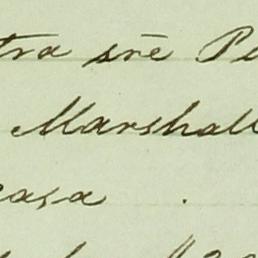 tra sre Pe
Marshall
casa .